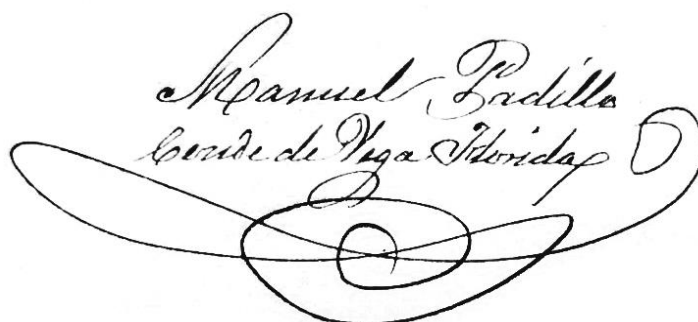 Manuel Padilla
Conde de Vega Florida